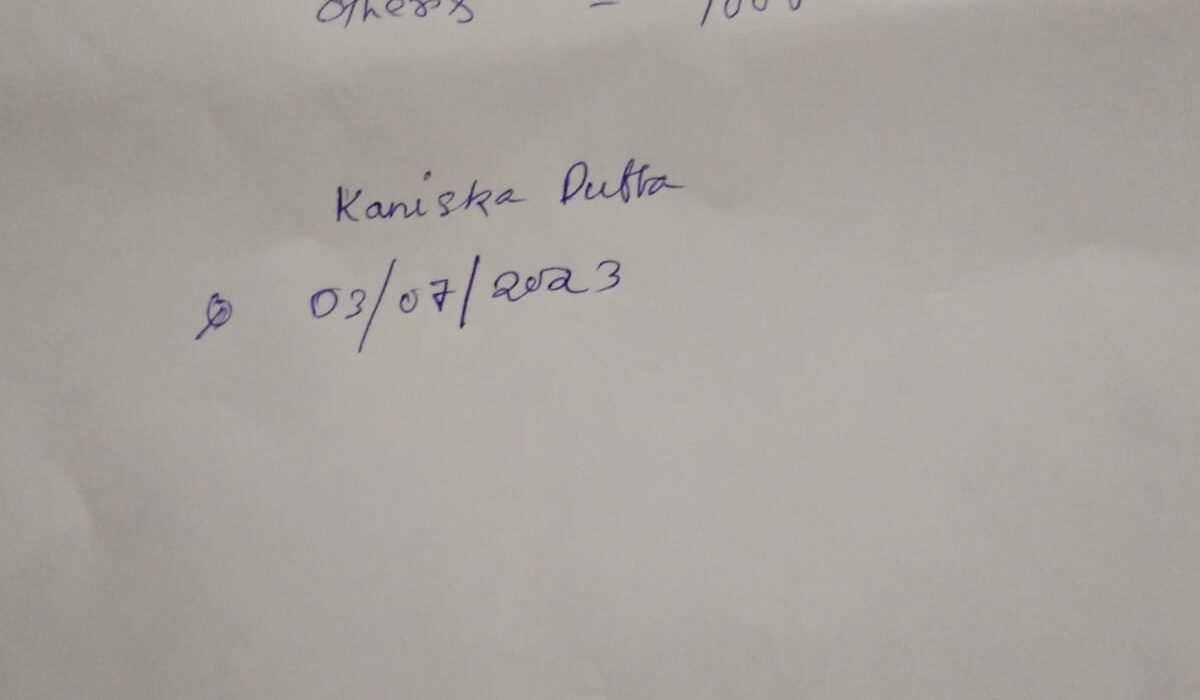 Others - 1000
Kaniska Dutta
03/07/2023